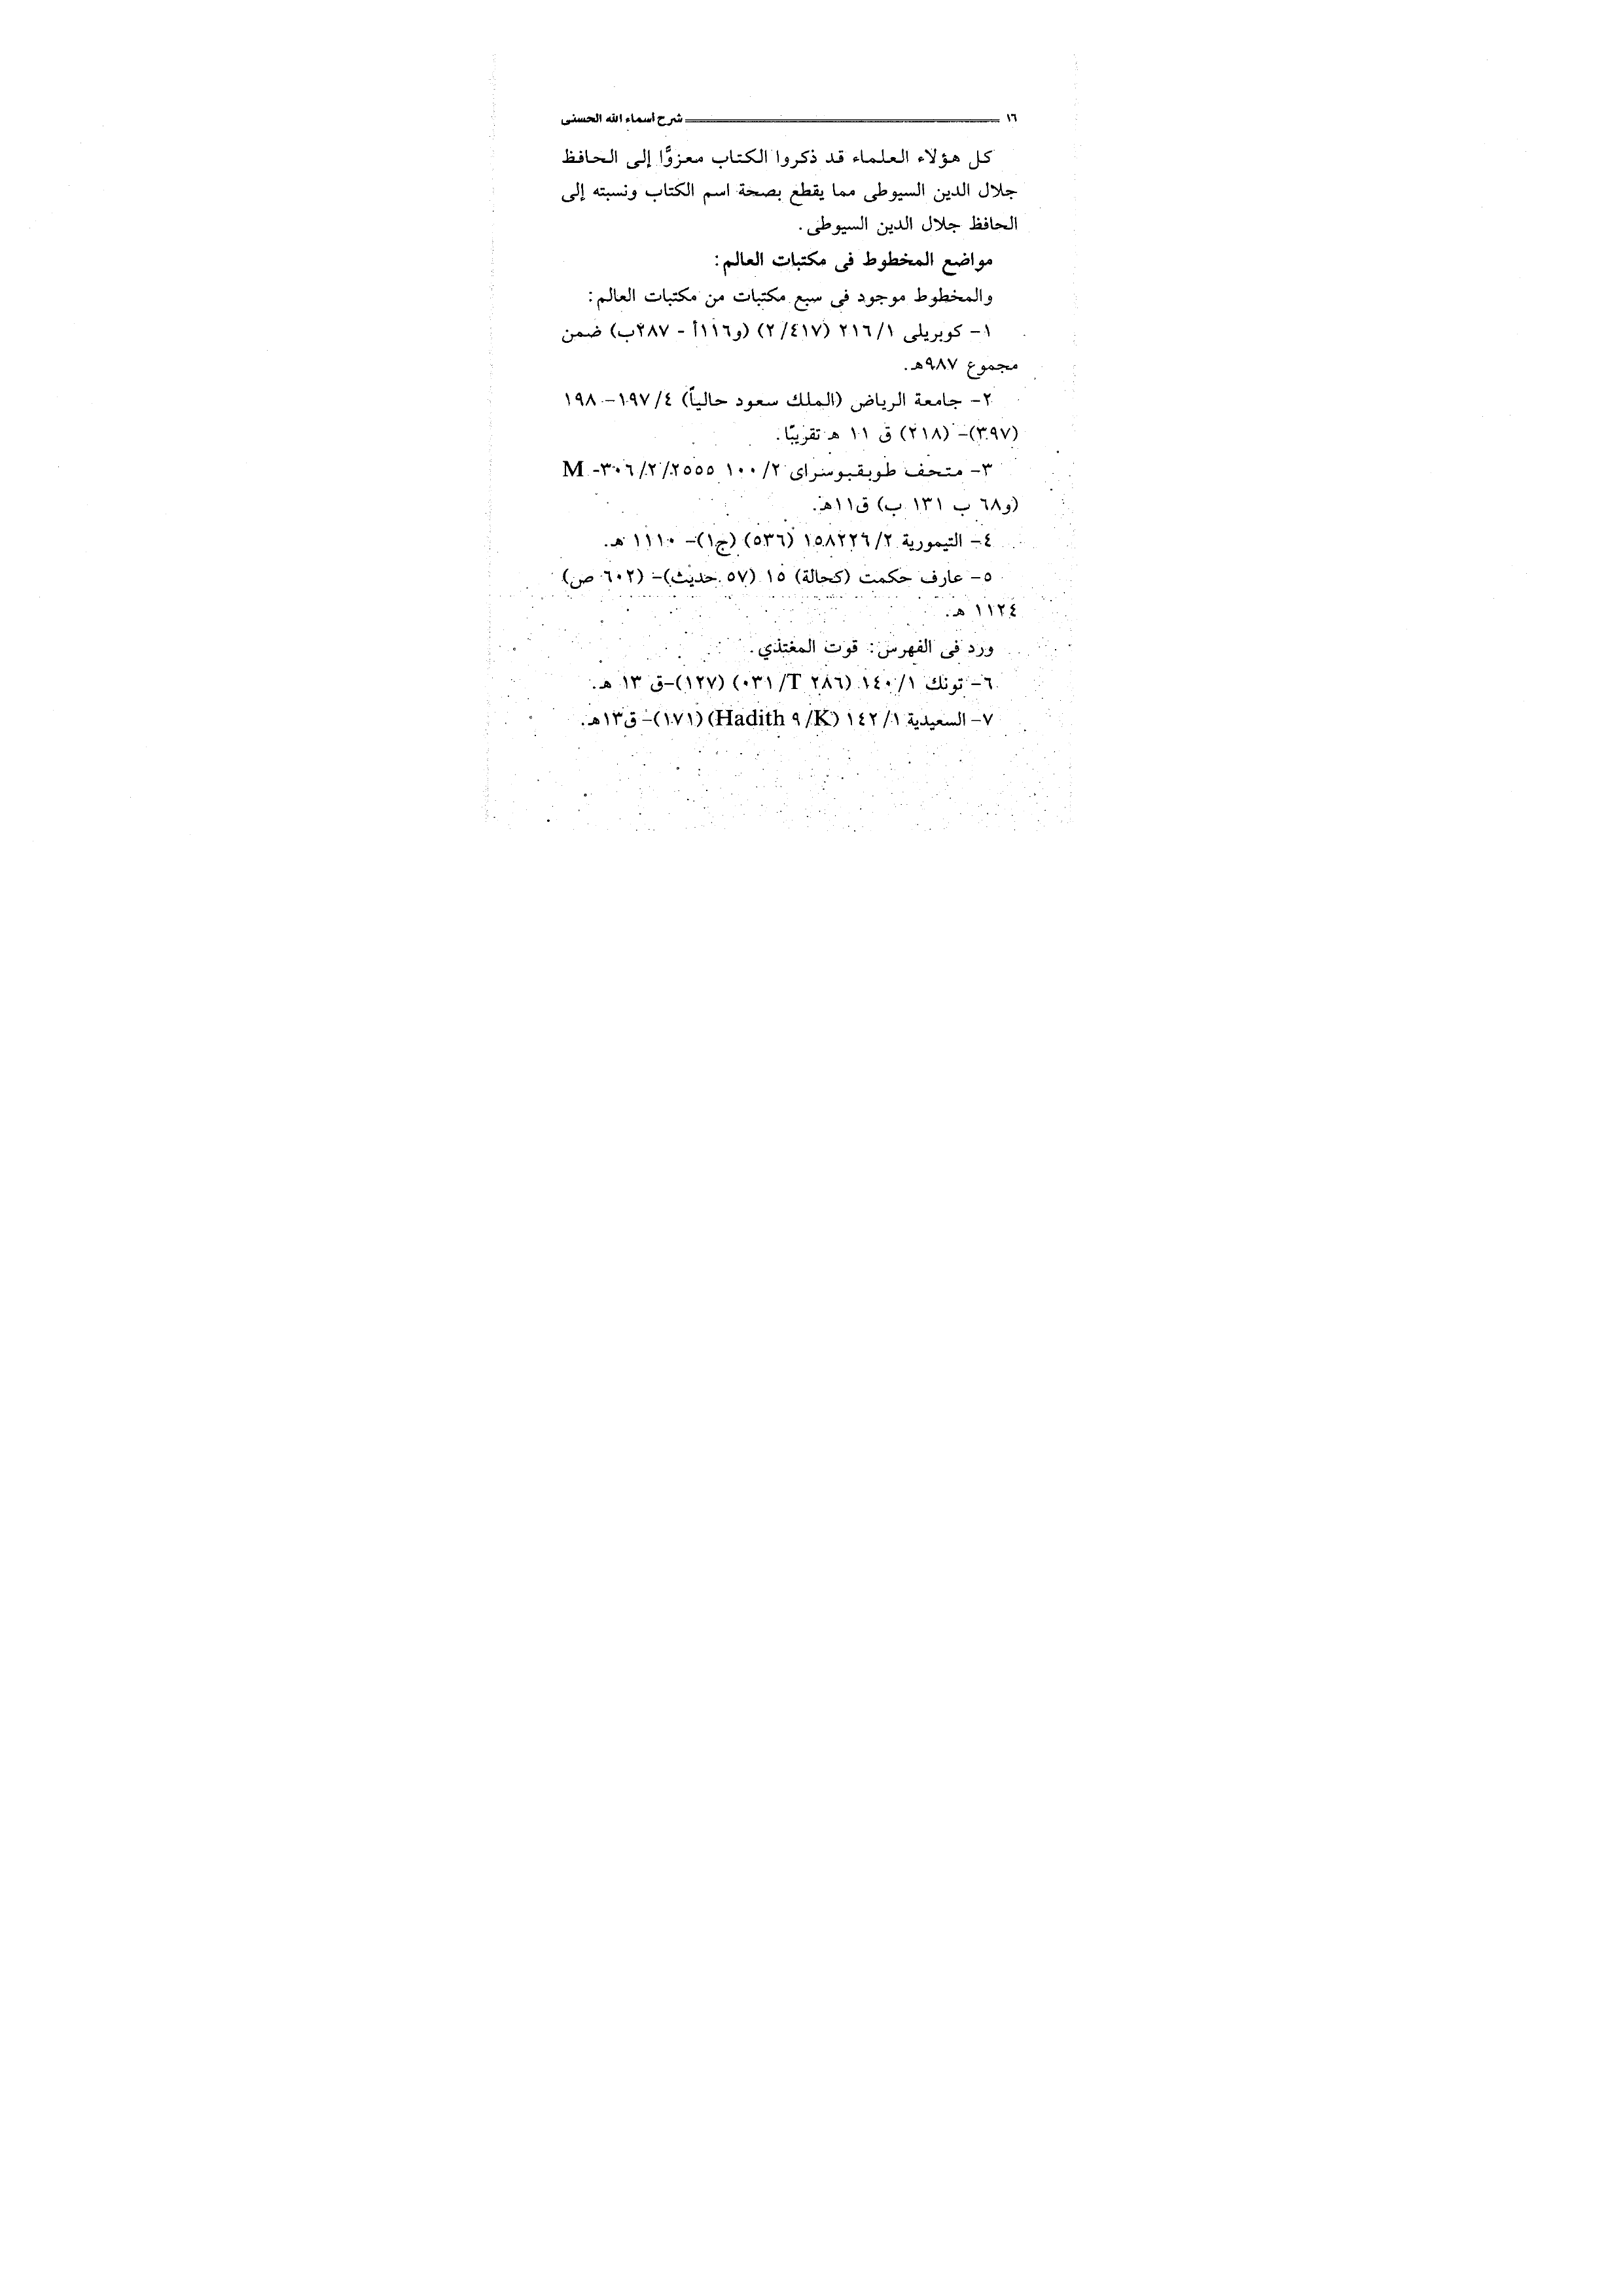 ١٦ شرح أسماء الله الحسنى
كل هؤلاء العلماء قد ذكروا الكتاب معزوًّا إلى الحافظ
جلال الدين السيوطى مما يقطع بصحة اسم الكتاب ونسبته إلى
الحافظ جلال الدين السيوطى.
مواضع المخطوط فى مكتبات العالم:
والمخطوط موجود فى سبع مكتبات من مكتبات العالم:
١- كوبريلى ٢١٦/١ (٢/٤١٧) (و١١٦أ - ٢٨٧ب) ضمن
مجموع ٩٨٧هـ.
٢- جامعة الرياض (الملك سعود حالياً) ١٩٧/٤-١٩٨
(٣٩٧)- (٢١٨) ق ١١ هـ تقريبًا.
٣- متحف طوبقبوسراى ١٠٠/٢ ٢٥٥٥/٢/٣٠٦- M
(و٦٨ ب ١٣١ ب) ق١١هـ.
٤- التيمورية ١٥٨٢٢٦/٢ (٥٣٦) (ج١)- ١١١٠ هـ.
٥- عارف حكمت (كحالة) ١٥ (٥٧ حديث)- (٦٠٢ ص)
١١٢٤ هـ.
ورد فى الفهرس: قوت المغتذي.
٦- تونك ١٤٠/١ (٢٨٦ T/٠٣١) (١٢٧)-ق ١٣ هـ.
٧- السعيدية ١٤٢/١ (Hadith ٩/K) (١٧١)- ق١٣هـ.